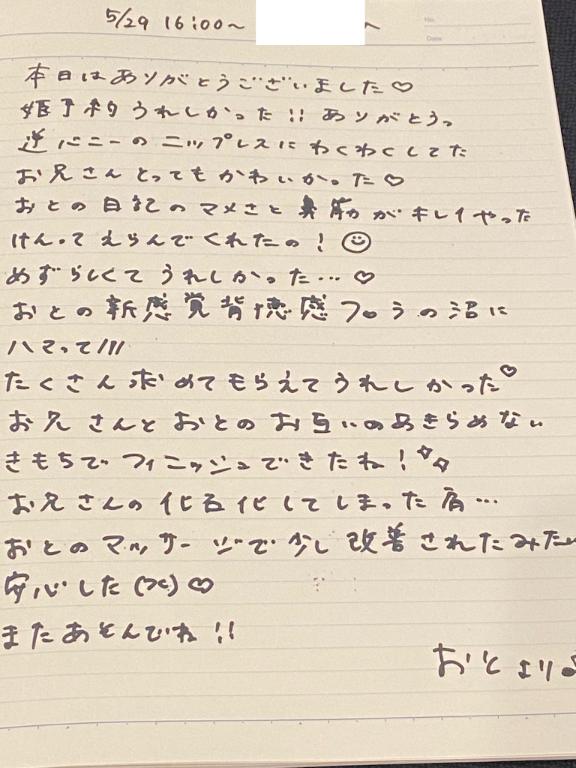 5/29 16:00〜 へ
No.
Date
本日はありがとうございました♡
姫予約うれしかった!! ありがとうっ
逆バニーのニップレスにわくわくしてた
お兄さんとってもかわいかった♡
おとの日記のマメさと鼻筋がキレイやった
けんってえらんでくれたの!☺
めずらしくてうれしかった…♡
おとの新感覚背徳感フロうの沼に
ハマって///
たくさん求めてもらえてうれしかった♡
お兄さんとおとのお互いのあきらめない
きもちでフィニッシュできたね!✧✧
お兄さんの化石化してしまった肩…
おとのマッサージで少し改善されたみたい
安心した(x) ♡
またあそんでね!!
おとより♪